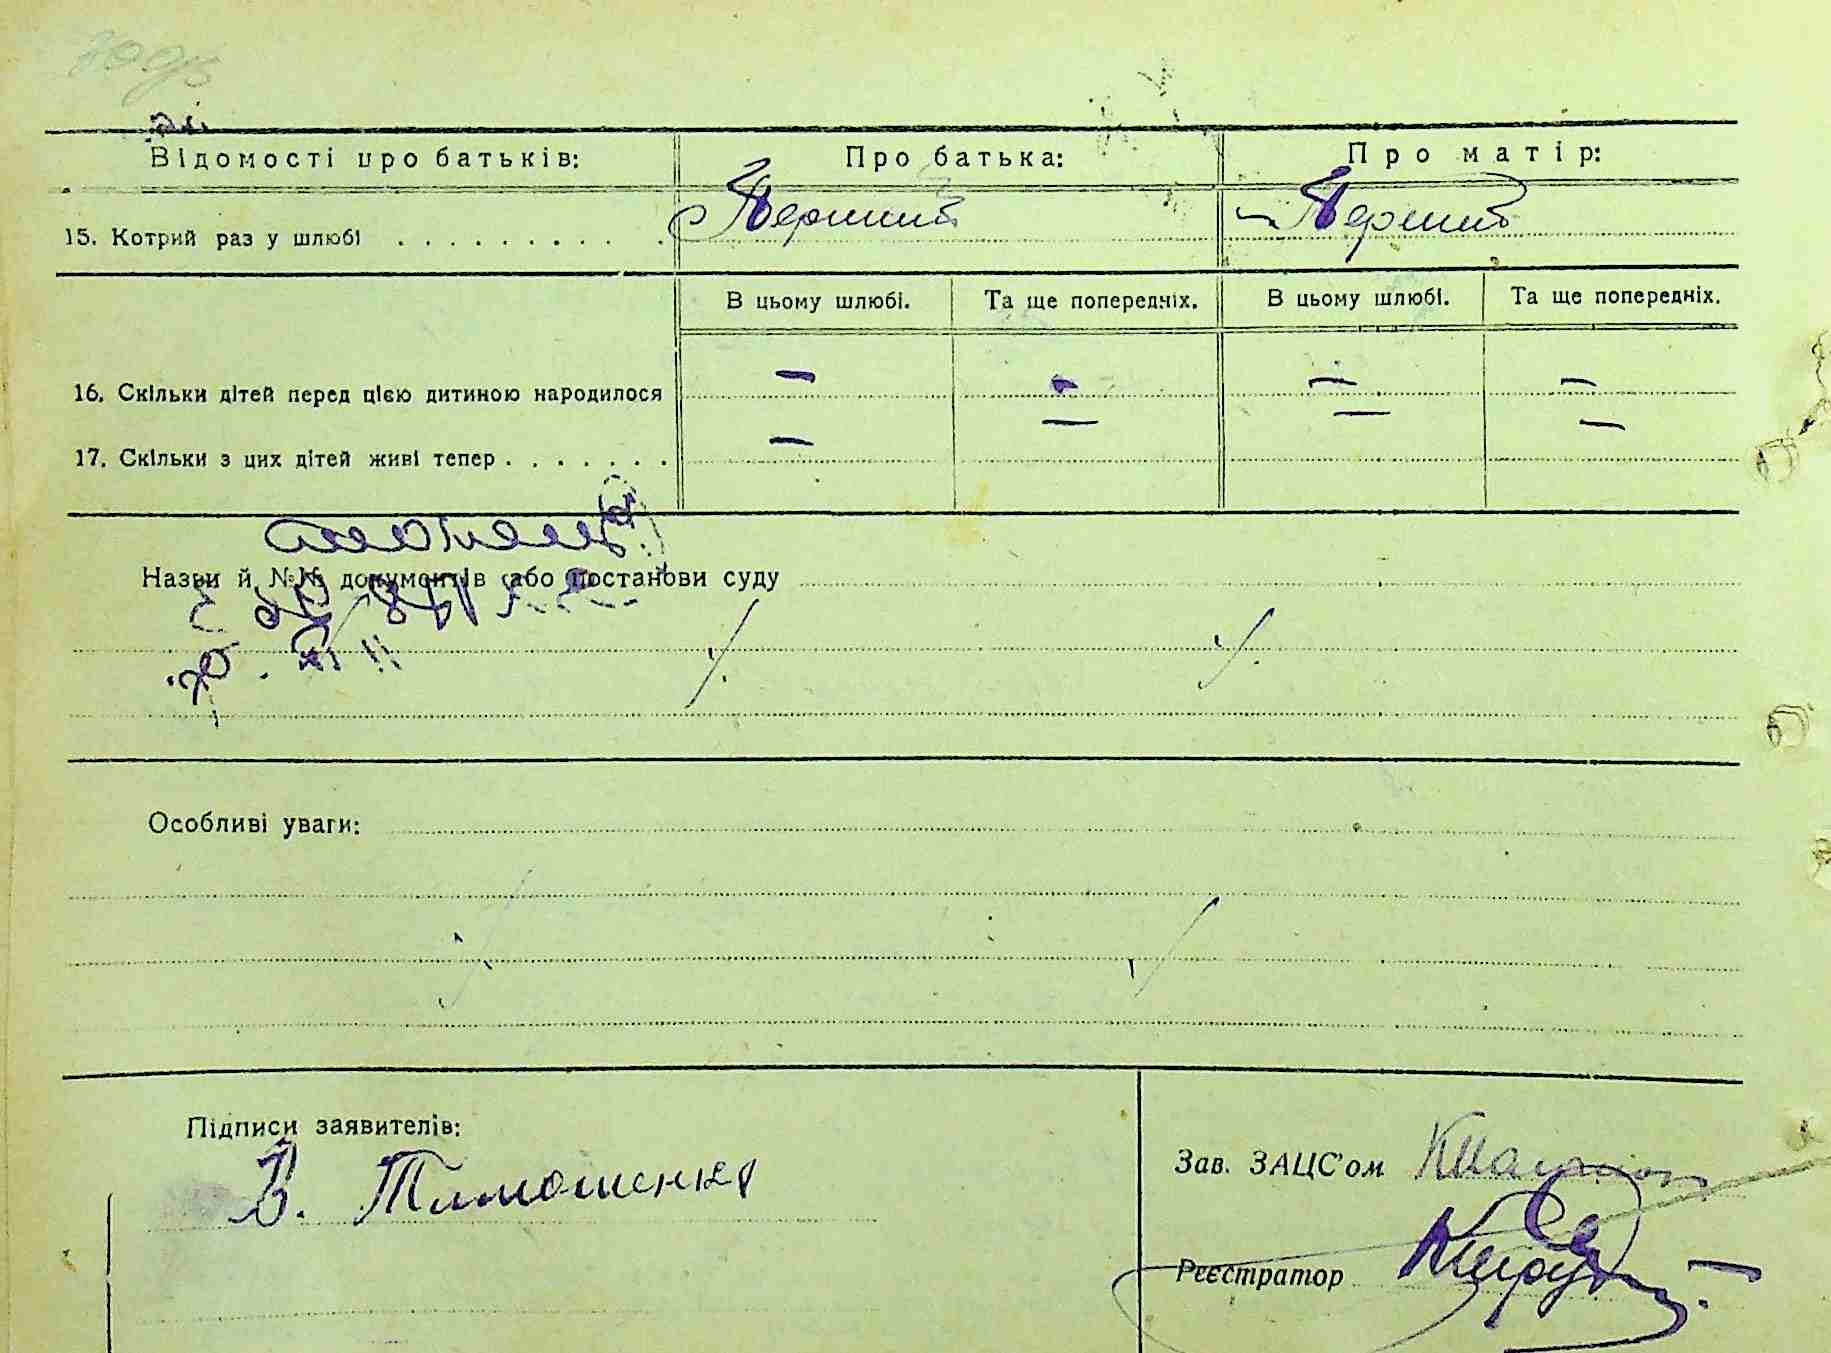 Відомості про батьків: Про батька: Про матір:
15. Котрий раз у шлюбі . . . . . . . . . . Перший Перший
В цьому шлюбі. Та ще попередніх. В цьому шлюбі. Та ще попередніх.
16. Скільки дітей перед цією дитиною народилося — — — —
17. Скільки з цих дітей живі тепер . . . . . . . — — — —
Назви й №№ документів або постанови суду
Особливі уваги:
Підписи заявителів:
В. Тимошенко
Зав. ЗАЦС'ом
Реєстратор